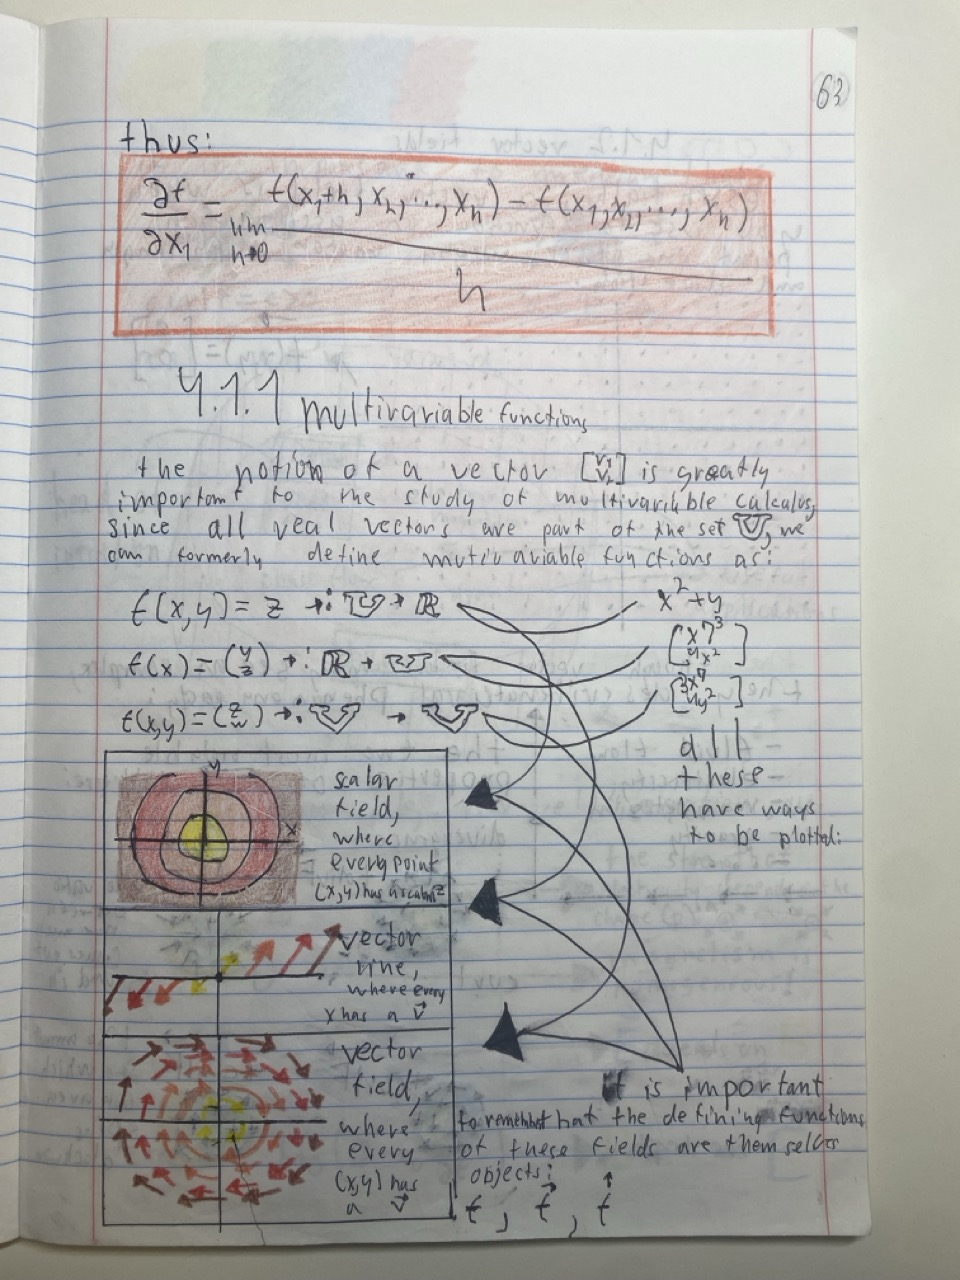 63
thus:
∂f/∂x₁ = lim h→0 f(x₁+h, x₂, ..., xₙ) - f(x₁, x₂, ..., xₙ) / h
4.1.1 multivariable functions
the notion of a vector [v₁ v₂] is greatly
important to the study of multivariable calculus,
since all real vectors are part of the set 𝕍, we
can formerly define mutivariable functions as:
f(x,y) = z →: 𝕍 → ℝ x²+y
f(x) = (y z) →: ℝ → 𝕍
f(x,y) = (z w) →: 𝕍 → 𝕍
all
these
have ways
to be plotted:
y
x
scalar
field,
where
every point
(x,y) has a scalar z
vector
line,
where every
x has a v⃗
vector
field,
where
every
(x,y) has
a v⃗
it is important
to remember that the defining functions
of these fields are themselves
objects:
f, f⃗, f↑